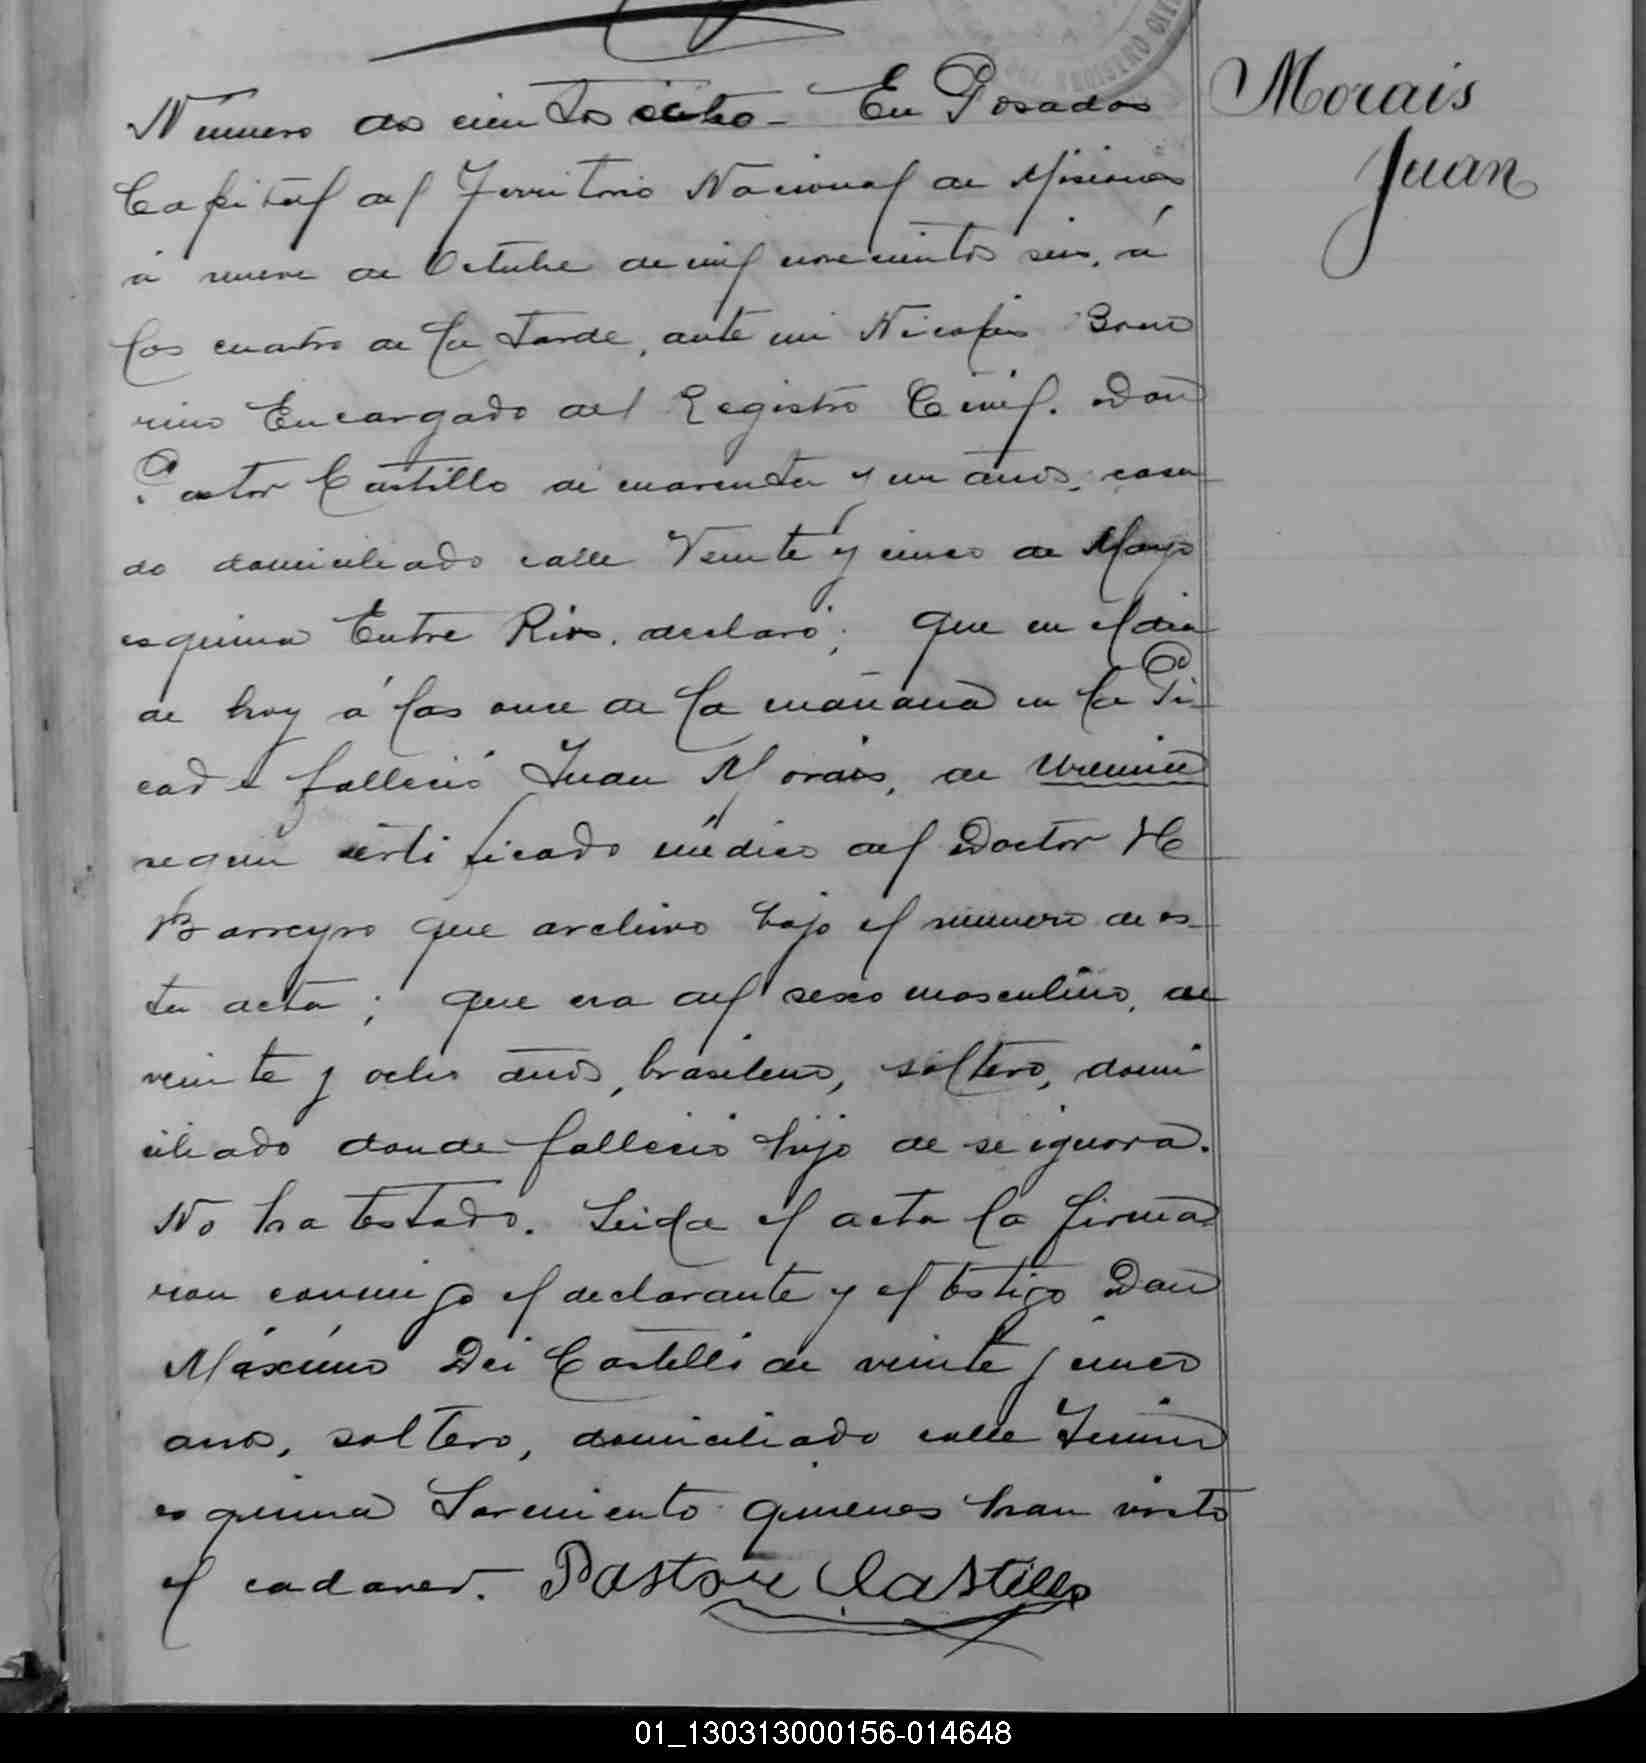 REGISTRO CIVIL
Morais
Juan
Número dos cientos ocho - En Posadas
Capital del Territorio Nacional de Misiones
á nueve de Octubre de mil novecientos seis, á
las cuatro de la tarde, ante mi Nicolás
rino Encargado del Registro Civil. Don
Pastor Castillo de cuarenta y un años, casa
do domiciliado calle Veinte y cinco de Mayo
esquina Entre Rios, declaró; que en el dia
de hoy á las once de la mañana en la Pi-
cada falleció Juan Morais, de uremia
segun certificado médico del Doctor H
Barreyro que archivo bajo el número de es-
ta acta; que era del sexo masculino, de
veinte y ocho años, brasilero, soltero, domi
ciliado donde falleció hijo de se ignora.
No ha testado. Leida el acta la firma
ron conmigo el declarante y el testigo Don
Máximo Dei Castelli de veinte y cinco
anos, soltero, domiciliado calle Junin
esquina Sarmiento quienes han visto
el cadaver. Pastor Castillo
01_130313000156-014648